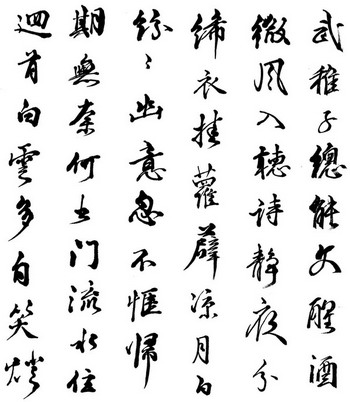 武稚子總能文醒酒
微風入聽詩靜夜分
絺衣挂蘿薜涼月白
紛〻幽意忽不愜歸
期無奈何出门流水住
迴首白雲多自笑燈